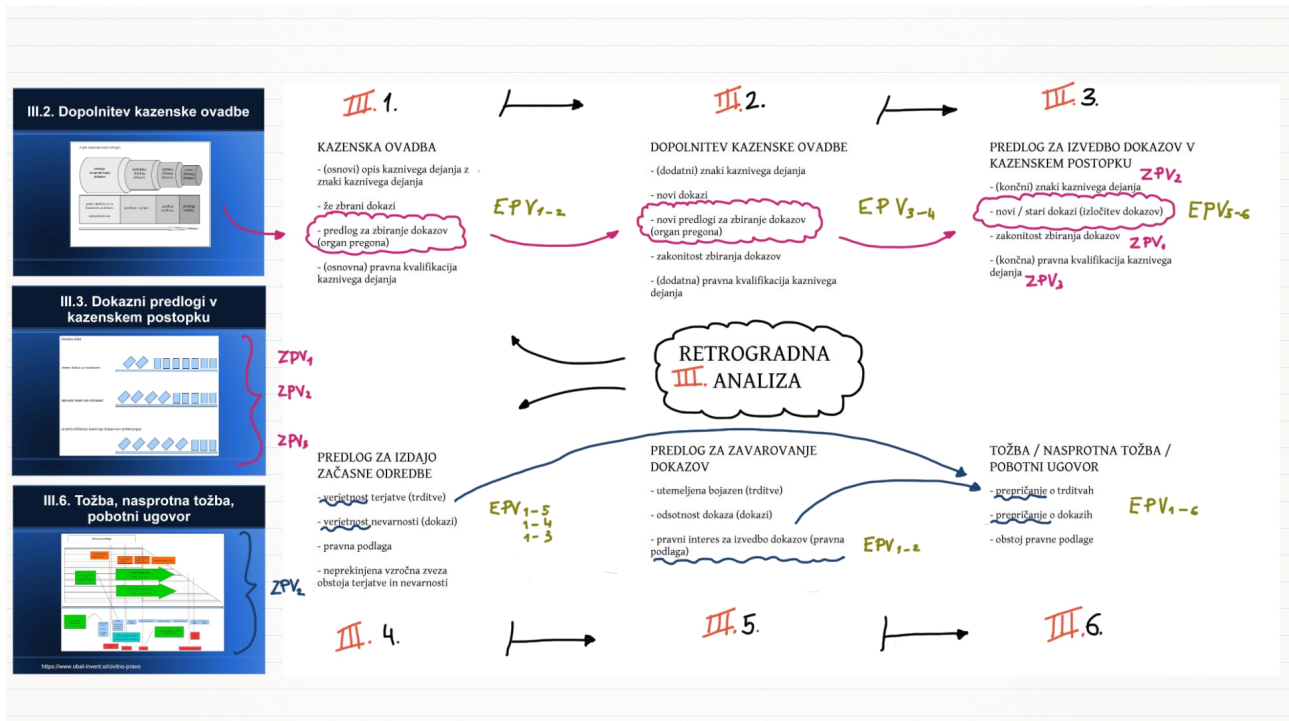 III.2. Dopolnitev kazenske ovadbe
III.3. Dokazni predlogi v
kazenskem postopku
III.6. Tožba, nasprotna tožba,
pobotni ugovor
https://www.obal-invent.si/civilno-pravo
ZPV₁
ZPV₂
ZPV₃
ZPV₂
III. 1.
III. 2.
III. 3.
KAZENSKA OVADBA
- (osnovi) opis kaznivega dejanja z
znaki kaznivega dejanja
- že zbrani dokazi
- predlog za zbiranje dokazov
(organ pregona)
- (osnovna) pravna kvalifikacija
kaznivega dejanja
EPV₁₋₂
DOPOLNITEV KAZENSKE OVADBE
- (dodatni) znaki kaznivega dejanja
- novi dokazi
- novi predlogi za zbiranje dokazov
(organ pregona)
- zakonitost zbiranja dokazov
- (dodatna) pravna kvalifikacija kaznivega
dejanja
EPV₃₋₄
PREDLOG ZA IZVEDBO DOKAZOV V
KAZENSKEM POSTOPKU
ZPV₂
- (končni) znaki kaznivega dejanja
- novi / stari dokazi (izločitev dokazov)
EPV₅₋₆
- zakonitost zbiranja dokazov ZPV₁
- (končna) pravna kvalifikacija kaznivega
dejanja ZPV₃
RETROGRADNA
III. ANALIZA
PREDLOG ZA IZDAJO
ZAČASNE ODREDBE
- verjetnost terjatve (trditve)
- verjetnost nevarnosti (dokazi)
- pravna podlaga
- neprekinjena vzročna zveza
obstoja terjatve in nevarnosti
EPV₁₋₅
1-4
1-3
PREDLOG ZA ZAVAROVANJE
DOKAZOV
- utemeljena bojazen (trditve)
- odsotnost dokaza (dokazi)
- pravni interes za izvedbo dokazov (pravna
podlaga)
EPV₁₋₂
TOŽBA / NASPROTNA TOŽBA /
POBOTNI UGOVOR
- prepričanje o trditvah
- prepričanje o dokazih
- obstoj pravne podlage
EPV₁₋₆
III. 4.
III. 5.
III. 6.